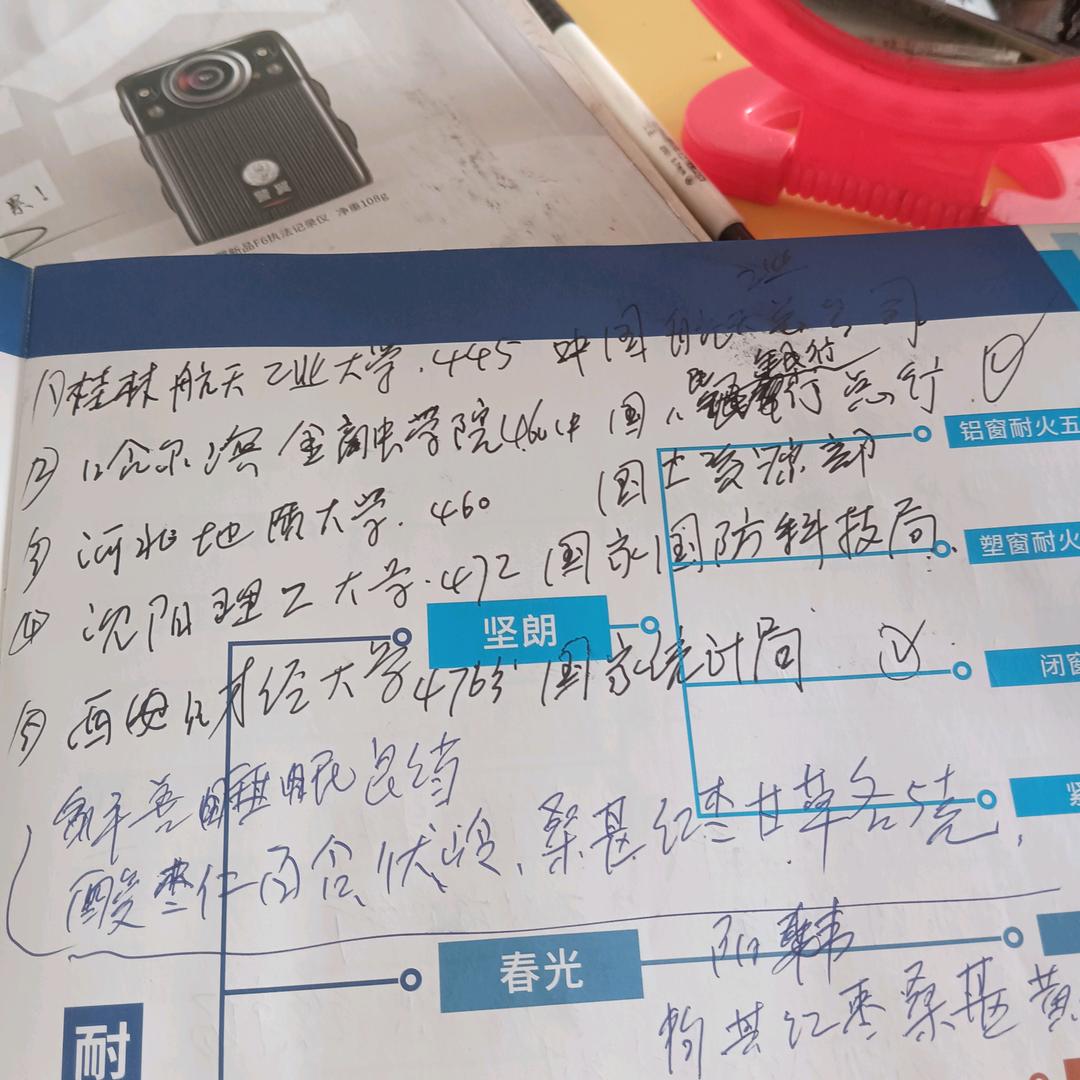 累！
新品F6执法记录仪 净重108g
①桂林航天工业大学.445 中国航天总公司
② 哈尔滨金融学院460 中国人民银行总行 ✓
③ 河北地质大学.460 国土资源部
④ 沈阳理工大学.472 国家国防科技局.
⑤ 西安财经大学476分 国家统计局 ✓
铝窗耐火五
塑窗耐火
坚朗
闭窗
紧
改善睡眠
酸枣仁百合、茯苓、桑葚红枣甘草各5克，
春光
枸杞红枣桑葚黄
耐